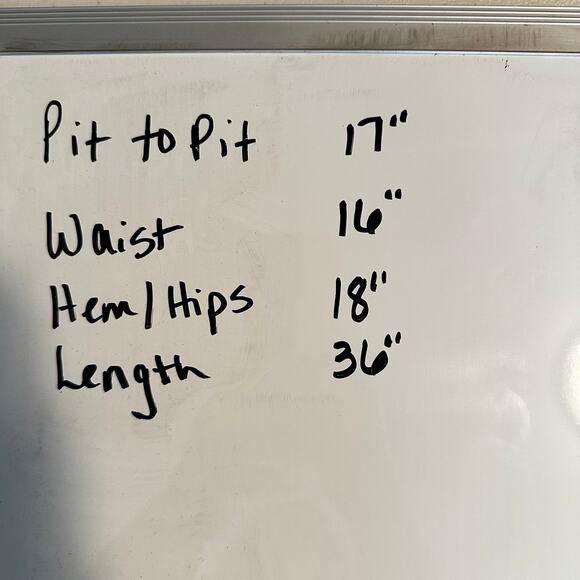 Pit to Pit 17"
Waist 16"
Hem/Hips 18"
Length 36"